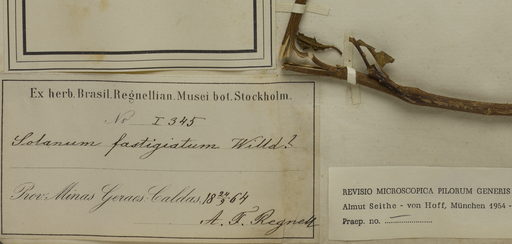 Ex herb. Brasil. Regnellian. Musei bot. Stockholm.
No I 345
Solanum fastigiatum Willd?
Prov. Minas Geraes Caldas, 18 24/9 64
A. F. Regnell
REVISIO MICROSCOPICA PILORUM GENERIS
Almut Seithe - von Hoff, München 1954 -
Praep. no.